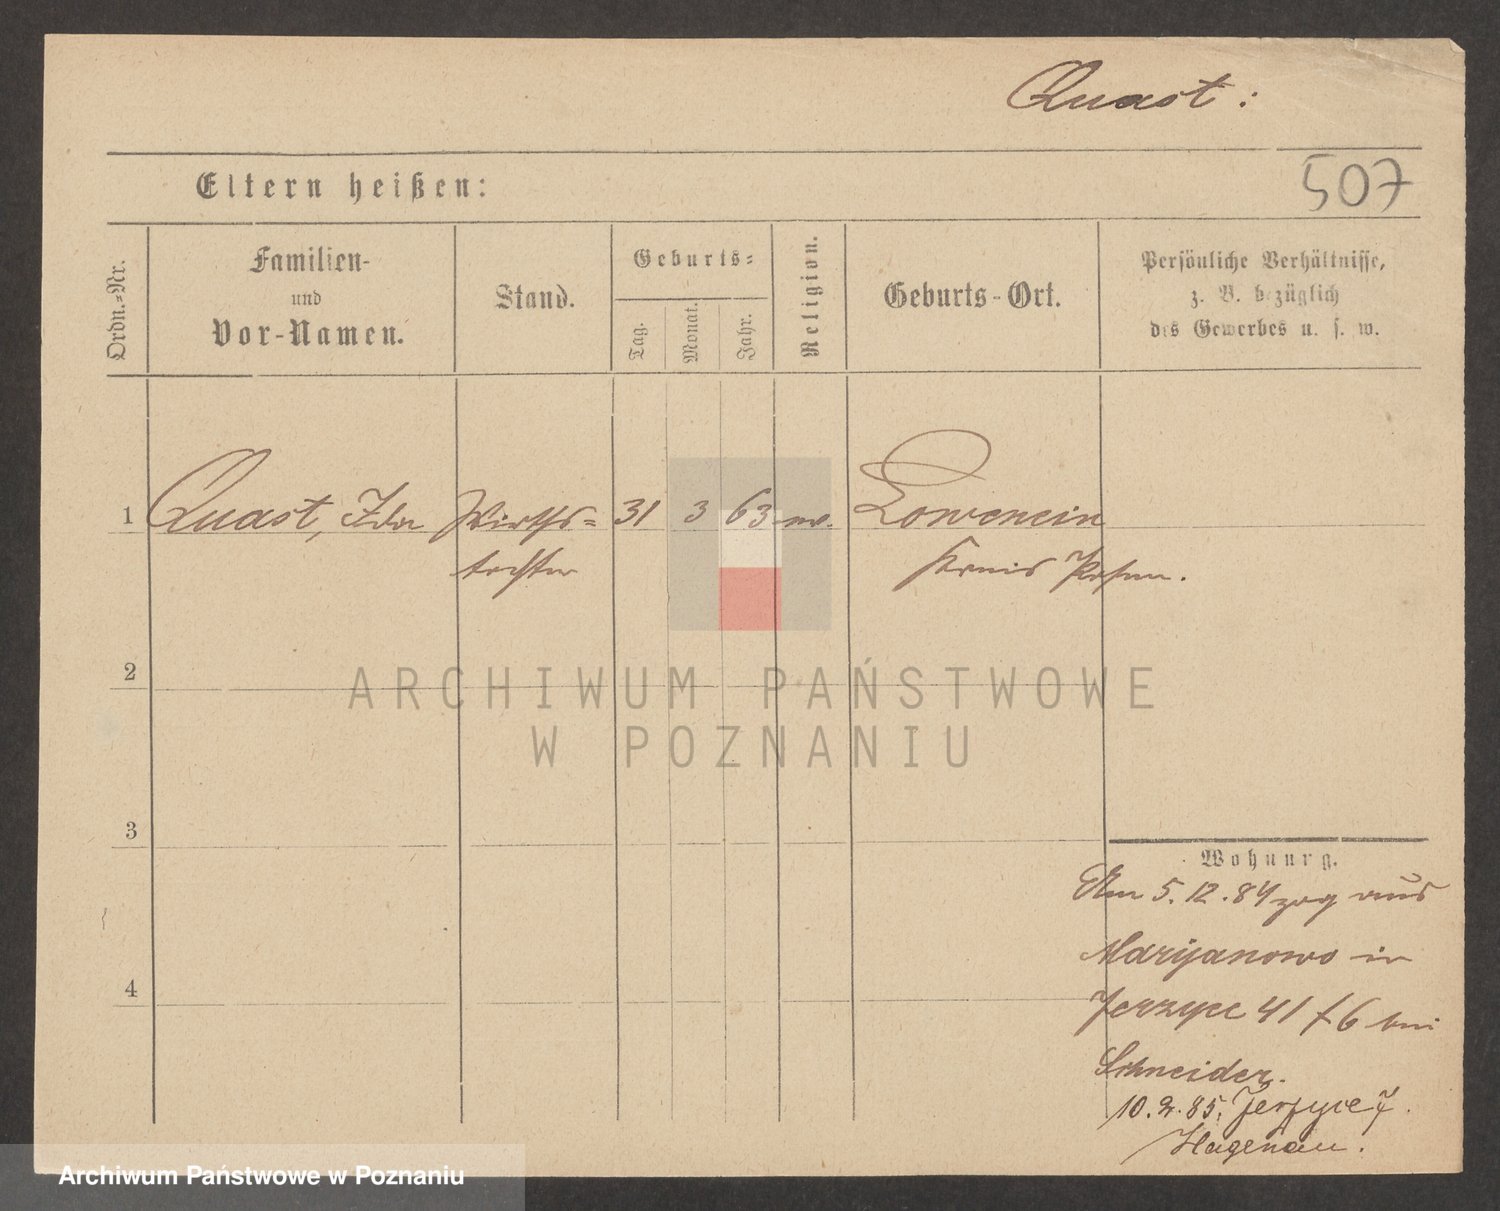 Quast:
507
Eltern heißen:
Ordn.-Nr.
Familien-
und
Vor-Namen.
Stand.
Geburts-
Tag.
Monat.
Jahr.
Religion.
Geburts-Ort.
Persönliche Verhältnisse,
z. B. bezüglich
des Gewerbes u. s. w.
1 Quast, Ida Wirths= 31 3 63 ev. Lowencin
tochter Kreis Posen.
2
ARCHIWUM PAŃSTWOWE
W POZNANIU
3
Wohnung.
Am 5.12.84 zog aus
Marijanowo in
4
Jerzyce 41/6 bei
Schneider.
10.2.85. Jerzyce 7.
Hagenau.
Archiwum Państwowe w Poznaniu